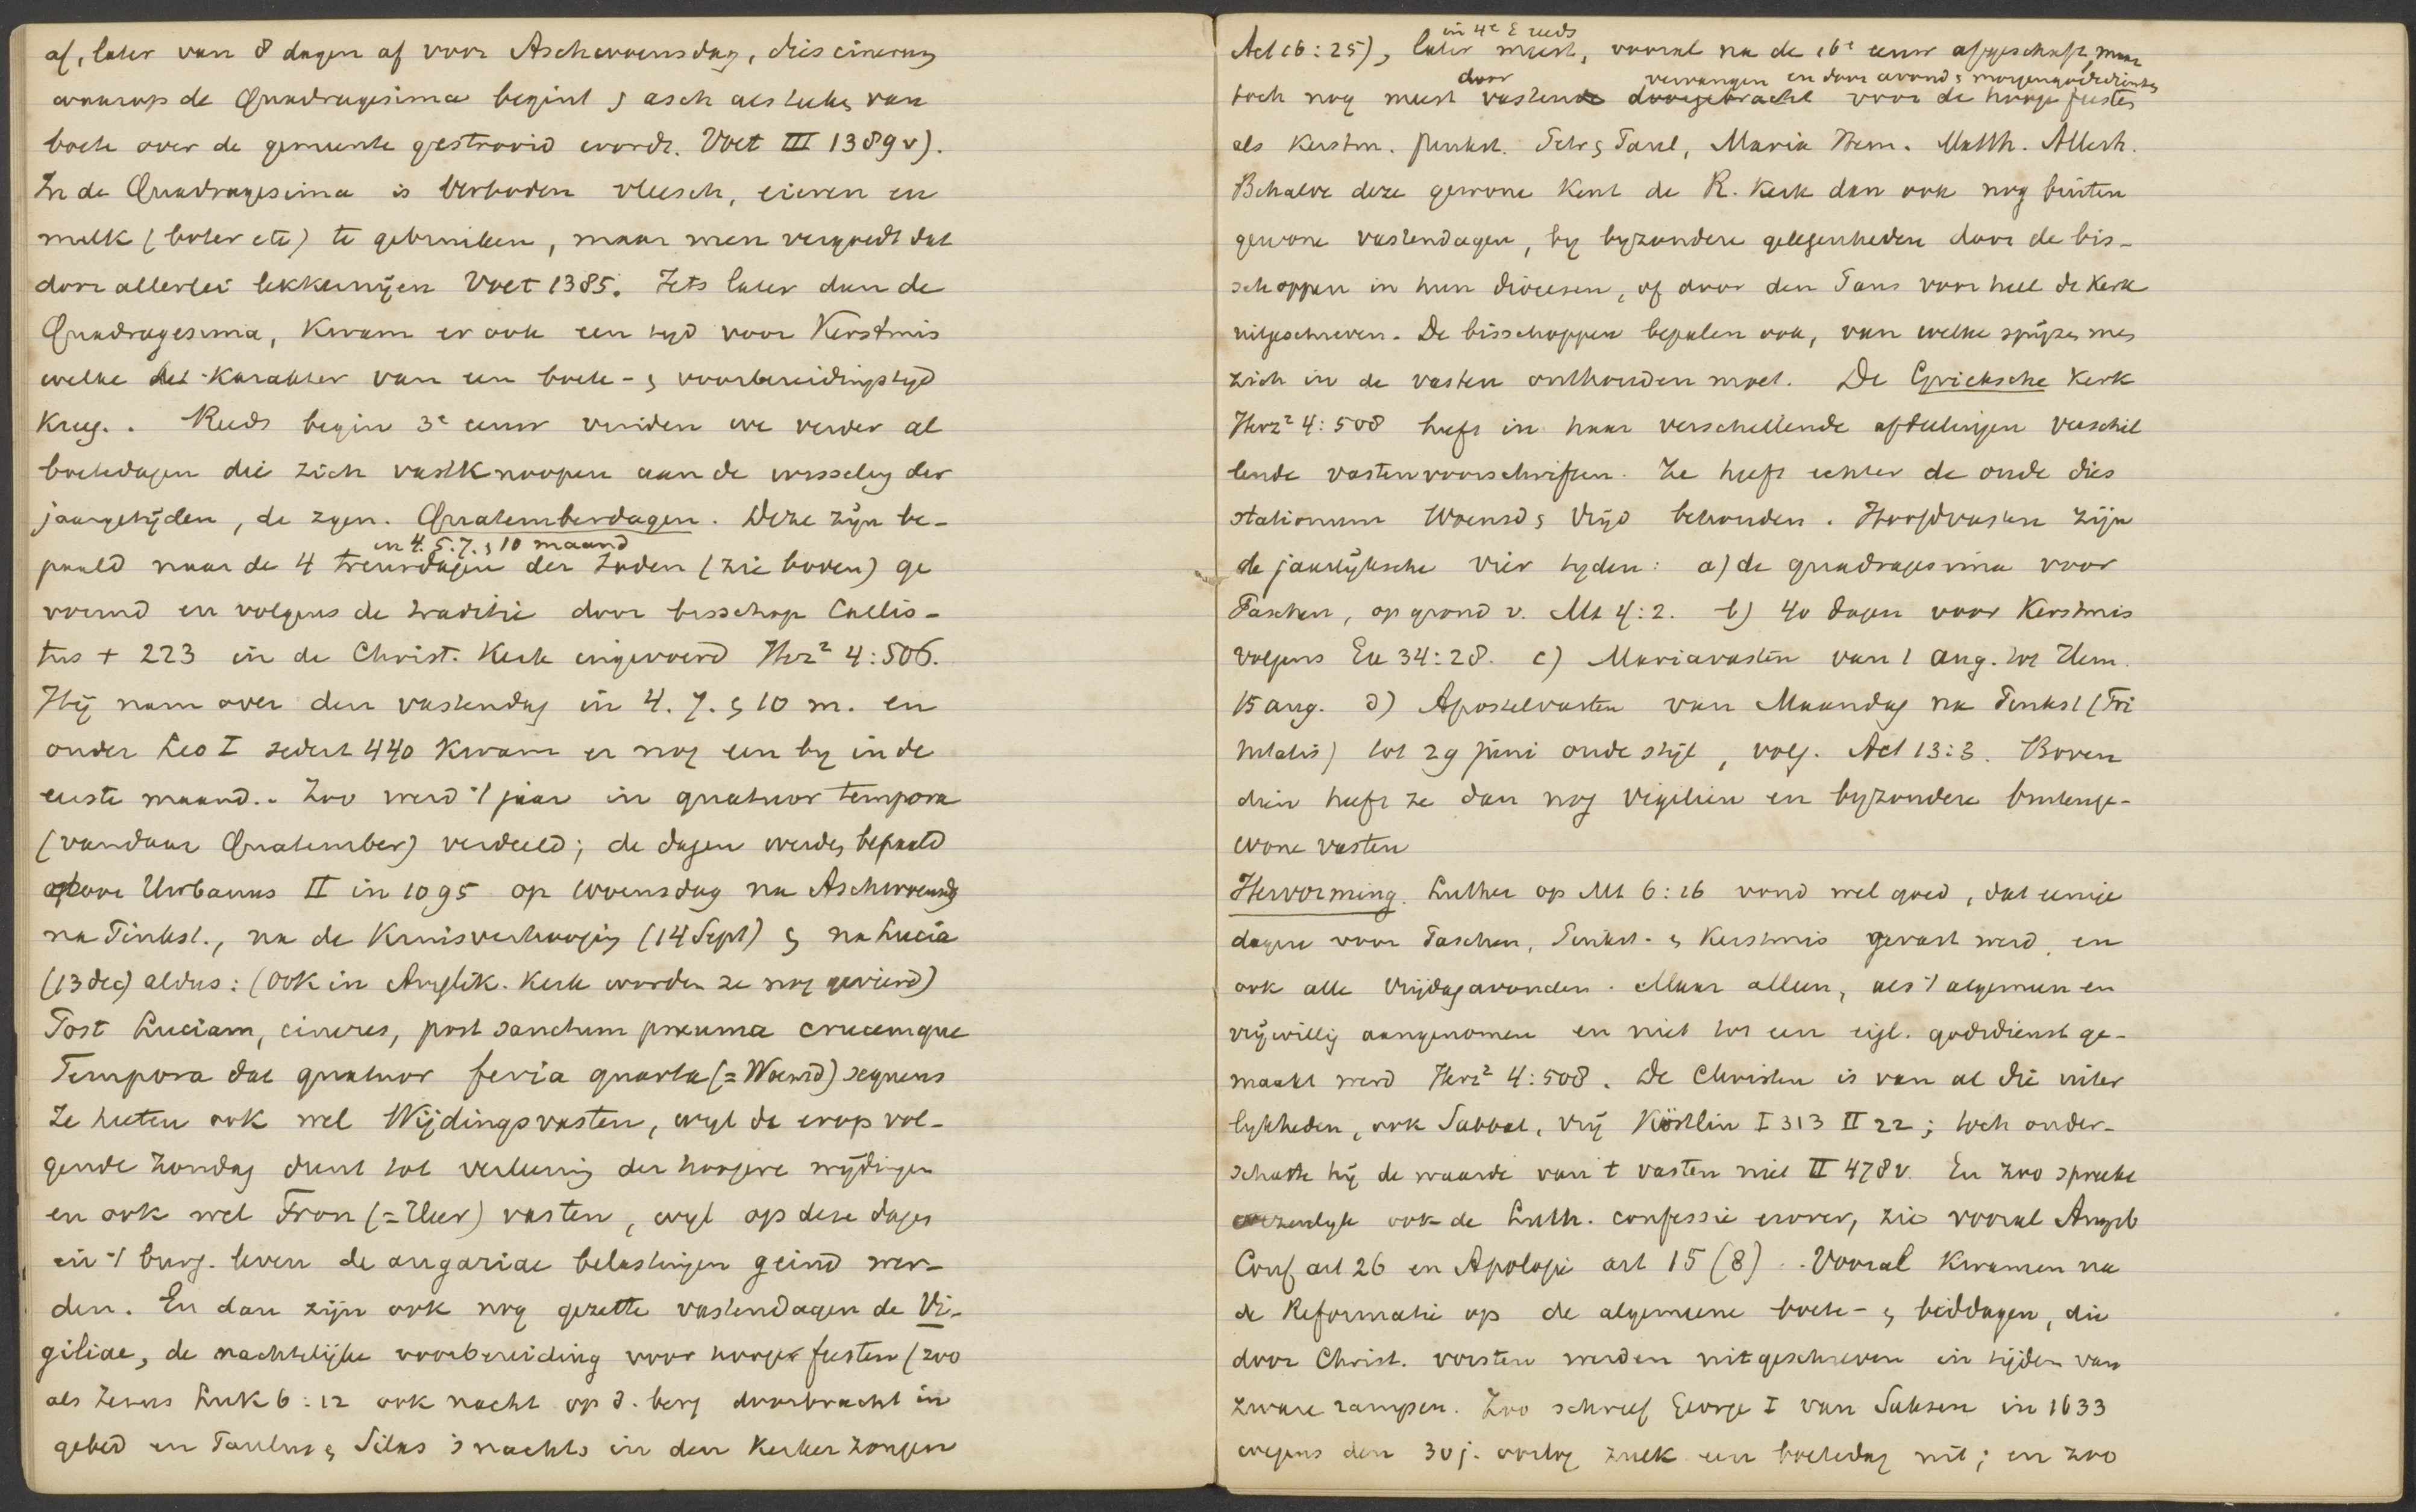 af, later van 8 dagen af voor Aschwoensdag, dies cinerum
waarop de Quadragesima begint & asch als teeken van
boete over de gemeente gestrooid wordt. Voet III 1389 v).
In de Quadragesima is verboden vleesch, eieren en
melk (boter etc) te gebruiken, maar men vergoedt dat
door allerlei lekkernijen Voet 1385. Iets later dan de
Quadragesima, kwam er ook een tijd voor Kerstmis
welke het karakter van een boete- & voorbereidingstijd
kreeg. Reeds begin 3e eeuw vinden we verder al
boetedagen die zich vastknoopen aan de wisseling der
jaargetijden, de zgen. Quatemberdagen. Deze zijn be-
in 4. 5. 7. & 10 maand
paald naar de 4 treurdagen der Joden (zie boven) ge
vormd en volgens de traditie door bisschop Callis-
tus + 223 in de Christ. Kerk ingevoerd Herz² 4:506.
Hij nam over den vastendag in 4. 7. & 10 m. en
onder Leo I sedert 440 kwam er nog een by in de
eerste maand. Zoo werd 't jaar in quatuor tempora
(vandaar Quatember) verdeeld; de dagen werden bepaald
door Urbanus II in 1095 op woensdag na Aschwoensdg
na Pinkst., na de Kruisverhooging (14 Sept) & na Lucia
(13 dec) aldus: (ook in Anglik. Kerk worden ze nog gevierd)
Post Luciam, cineres, post sanctum pneuma crucemque
Tempora dat quatuor feria quarta (= Woensd) sequens
Ze heeten ook wel Wijdingsvasten, wyl de erop vol-
gende Zondag dient tot verleening der hoogere wijdingen
en ook wel Fron (= Heer) vasten, wyl op deze dagen
in 't burg. leven de angariae belastingen geind wer-
den. En dan zijn ook nog gezette vastendagen de Vi-
giliae, de nachtelijke voorbereiding voor hooge feesten (zoo
als Jezus Luk 6:12 ook nacht op d. berg doorbracht in
gebed en Paulus & Silas 's nachts in den kerker zongen
in 4e E reeds
Act 16:25), later meest, vooral na de 16e eeuw afgeschaft, maar
door vervangen en door avond & morgengodsdiensten
toch nog meest vastende doorgebracht voor de hooge feesten
als Kerstm. Pinkst. Petr & Paul, Maria Hem. Matth. Allerh.
Behalve deze gewone kent de R. Kerk dan ook nog buiten
gewone vastendagen, by byzondere gelegenheden door de bis-
schoppen in hun diocesen, of door den Paus voor heel de Kerk
uitgeschreven. De bisschoppen bepalen ook, van welke spijzen men
zich in de vasten onthouden moet. De Grieksche Kerk
Herz² 4:508 heeft in haar verschillende afdeelingen verschil
lende vastenvoorschriften. Ze heeft echter de oude dies
stationum Woensd & Vrijd behouden. Hoofdvasten zijn
de jaarlyksche vier tyden: a) de quadragesima voor
Paschen, op grond v. Mt 4:2. b) 40 dagen voor Kerstmis
volgens Ex 34:28. c) Mariavasten van 1 Aug. tot Hem.
15 aug. d) Apostelvasten van Maandag na Pinkst (Tri
nitatis) tot 29 juni oude stijl, volg. Act 13:3. Boven
dien heeft ze dan nog vigiliën en byzondere buitenge-
wone vasten
Hervorming. Luther op Mt 6:16 vond wel goed, dat eenige
dagen voor Paschen, Pinkst. & Kerstmis gevast werd, en
ook alle Vrijdagavonden. Maar alleen, als 't algemeen en
vrijwillig aangenomen en niet tot een eigl. godsdienst ge-
maakt werd Herz² 4:508. De Christen is van al die uiter
lykheden, ook Sabbat, vrij Köstlin I 313 II 22; toch onder-
schatte hij de waarde van 't vasten niet II 478 v. En zoo spreekt
ook de Luth. confessie erover, zie vooral Augsb
Conf art 26 en Apologie art 15 (8). Vooral kwamen na
de Reformatie op de algemeene boete- & biddagen, die
door Christ. vorsten werden uitgeschreven in tijden van
zware rampen. Zoo schreef George I van Saksen in 1633
wegens den 30 j. oorlog zulk een boetedag uit; en zoo